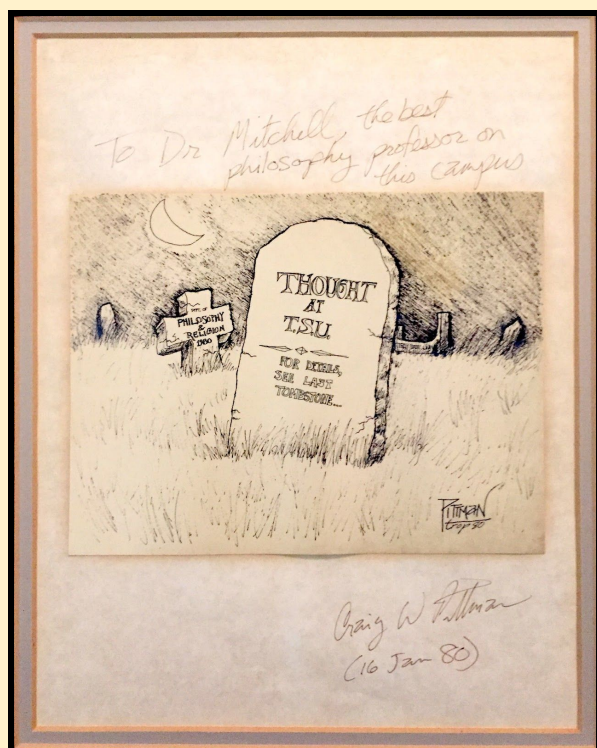 To Dr Mitchell, the best
philosophy professor on
this campus
DEPT. OF
PHILOSOPHY
&
RELIGION
1980
THOUGHT
AT
T.S.U.
FOR DETAILS,
SEE LAST
TOMBSTONE...
PITTMAN
trop 80
Craig W Pittman
(16 Jan 80)